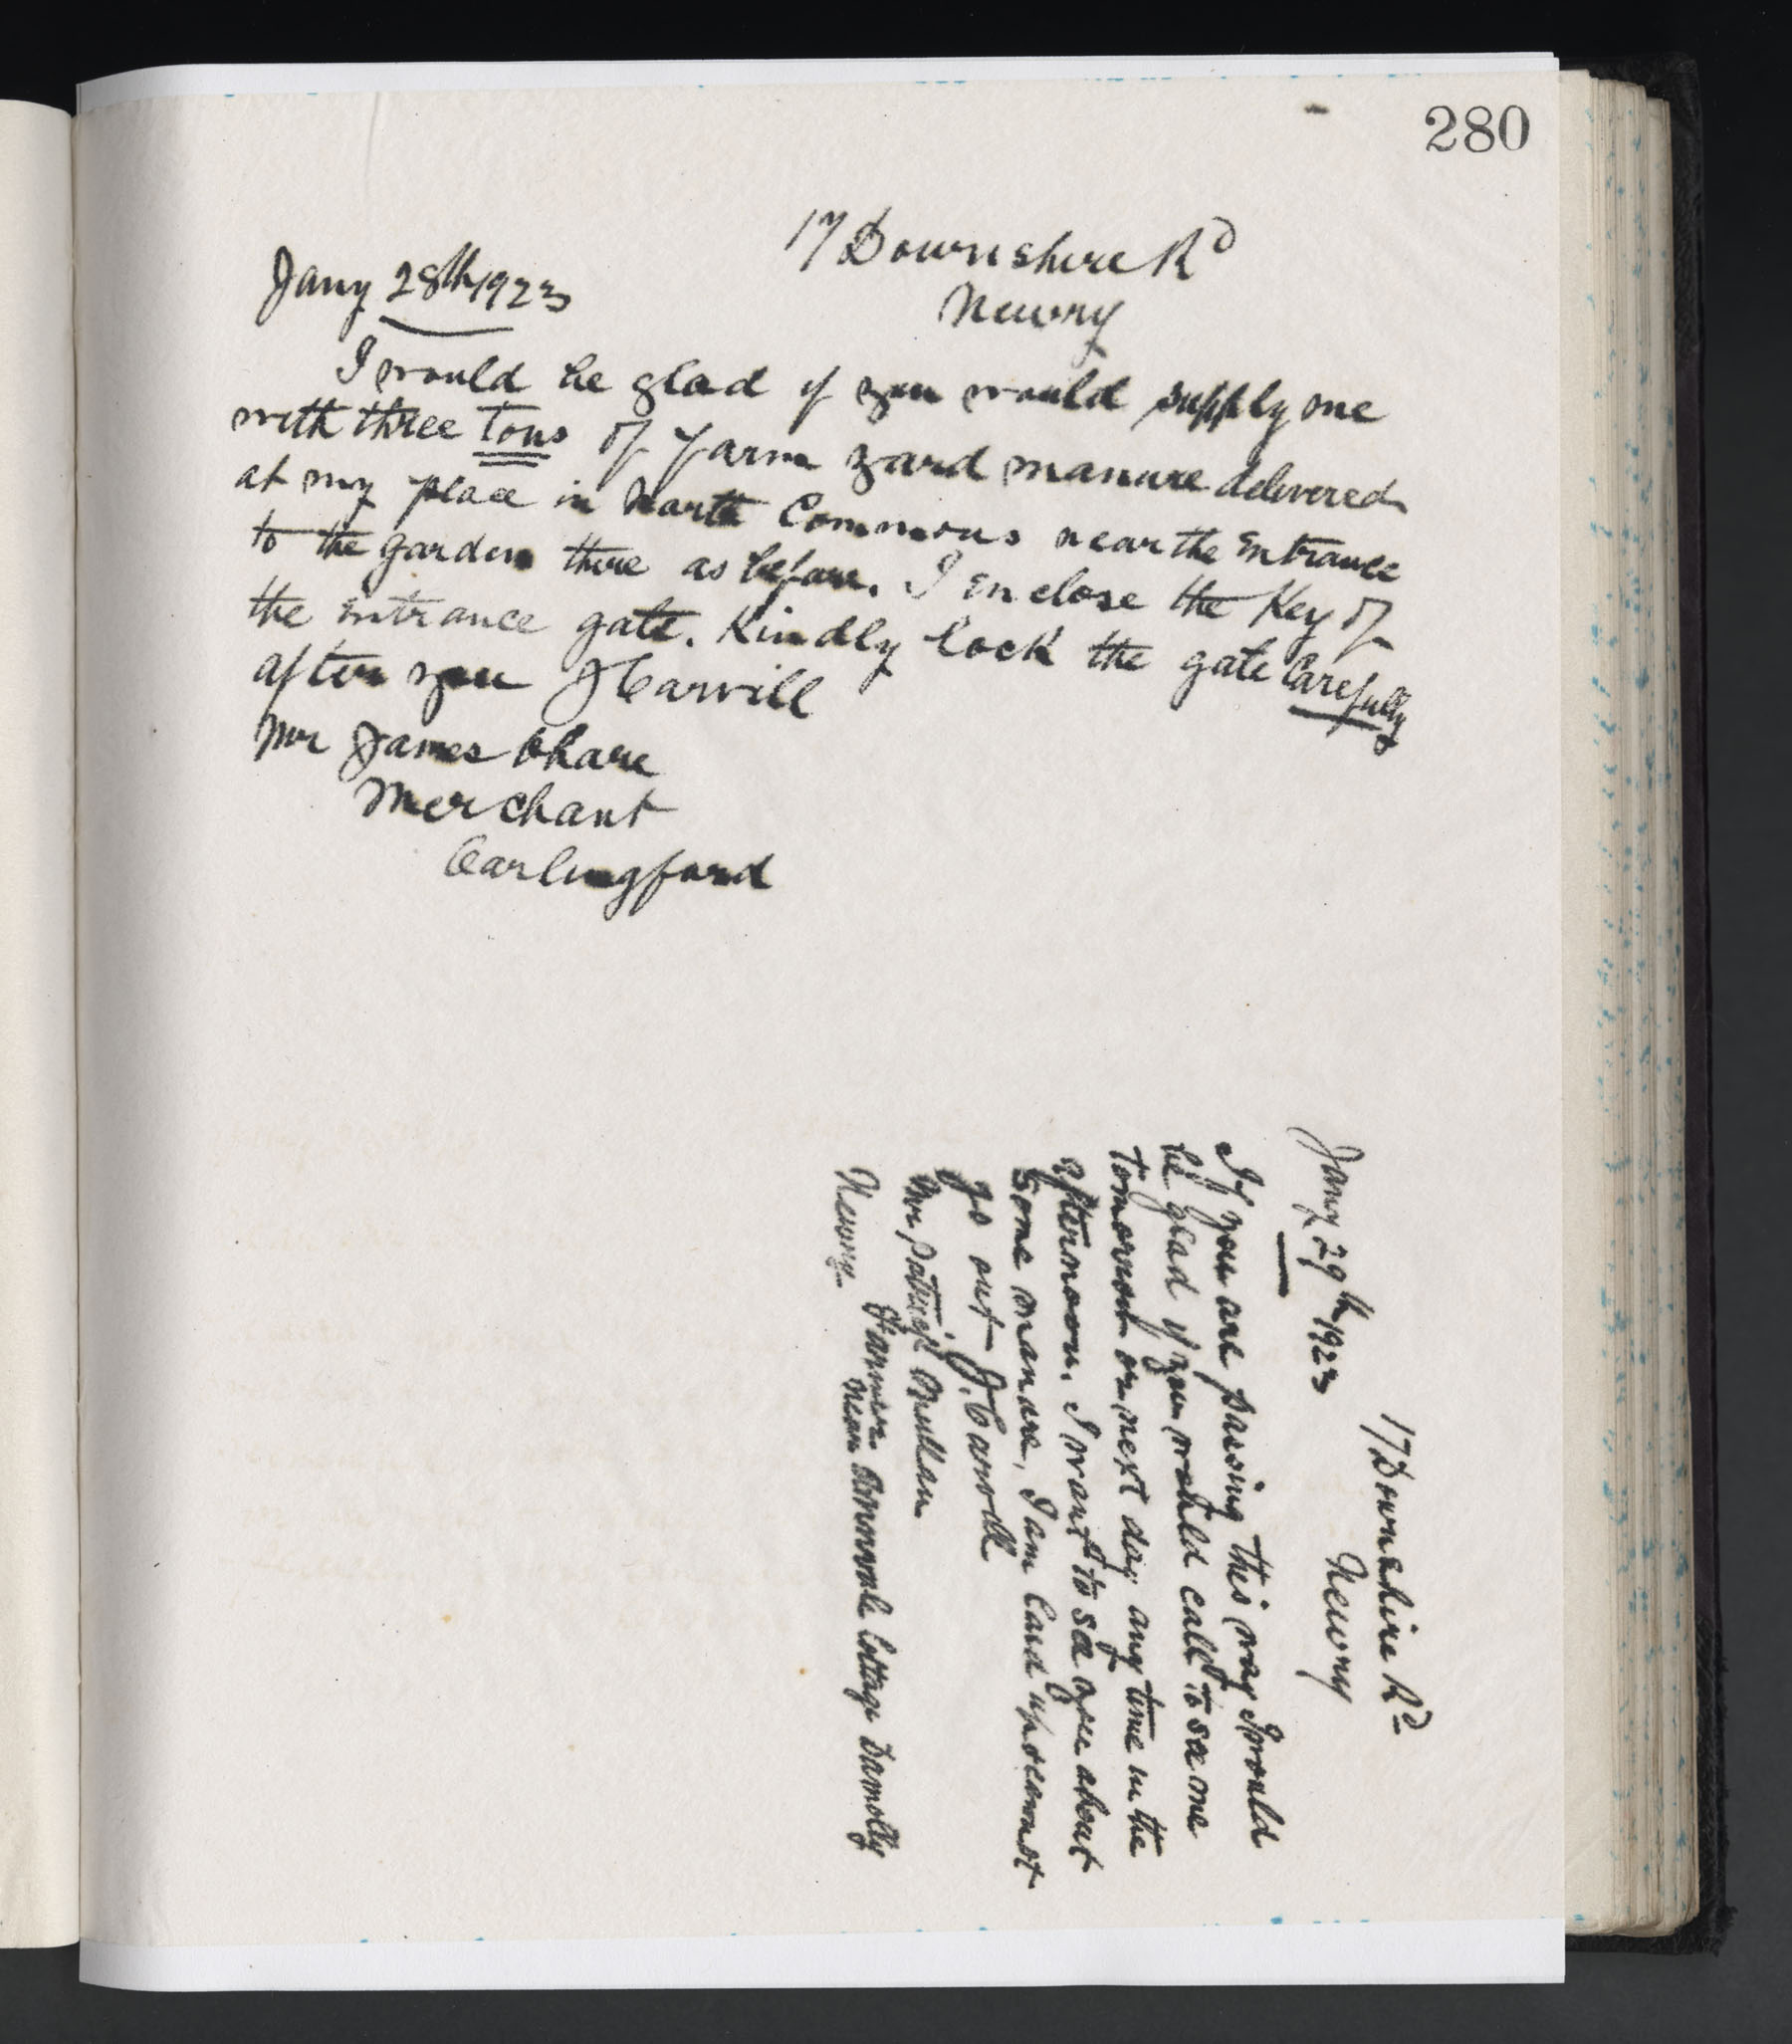 280
17 Downshire Rd
Newry
Jany 28th 1923
I would be glad if you would supply me
with three tons of farm yard manure delivered
at my place in North Commons near the Entrance
to the garden there as before. I Enclose the Key of
the entrance gate. Kindly lock the gate Carefully
after you J Carvill
Mr James
Merchant
Carlingford
17 Downshire Rd
Newry
Jany 29th 1923
If you are passing this way I would
be glad if you would call to see me
tomorrow or next day any time in the
afternoon. I want to see you about
some manure, I am laid up & cannot
go out J. Carvill
Mr Patrick Mullan
Farmer near Annvale Cottage Damolly
Newry